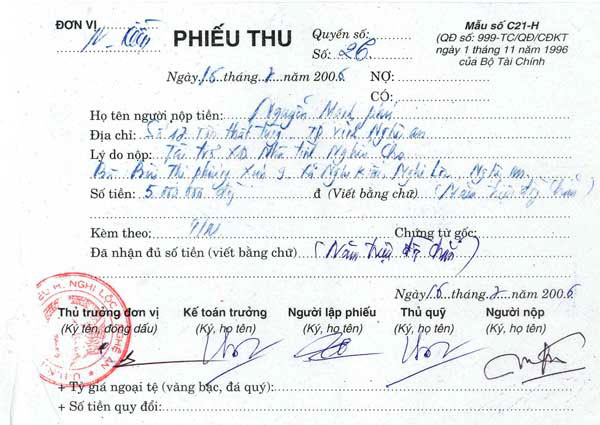 ĐƠN VỊ
PHIẾU THU
Quyển số:
Số: 26
Mẫu số C21-H
(QĐ số: 999-TC/QĐ/CĐKT
ngày 1 tháng 11 năm 1996
của Bộ Tài Chính)
Ngày 16 tháng 2 năm 2006 NỢ:
CÓ:
Họ tên người nộp tiền: Nguyễn Mạnh
Địa chỉ: Số 12 TP Vinh Nghệ an
Lý do nộp: Tài trợ XD Nhà tình Nghĩa Cho
Bà Bùi Thị phùng Xóm 9 Xã Nghi Kiều, Nghi Lộc, Nghệ an.
Số tiền: 5.000.000 đ (Viết bằng chữ) (Năm triệu đồng chẵn)
Kèm theo: Chứng từ gốc:
Đã nhận đủ số tiền (viết bằng chữ) (Năm triệu đồng chẵn)
Ngày 16 tháng 2 năm 2006
Thủ trưởng đơn vị Kế toán trưởng Người lập phiếu Thủ quỹ Người nộp
(Ký tên, đóng dấu) (Ký, họ tên) (Ký, họ tên) (Ký, họ tên) (Ký, họ tên)
+ Tỷ giá ngoại tệ (vàng bạc, đá quý):
+ Số tiền quy đổi:
H. NGHI LỘC